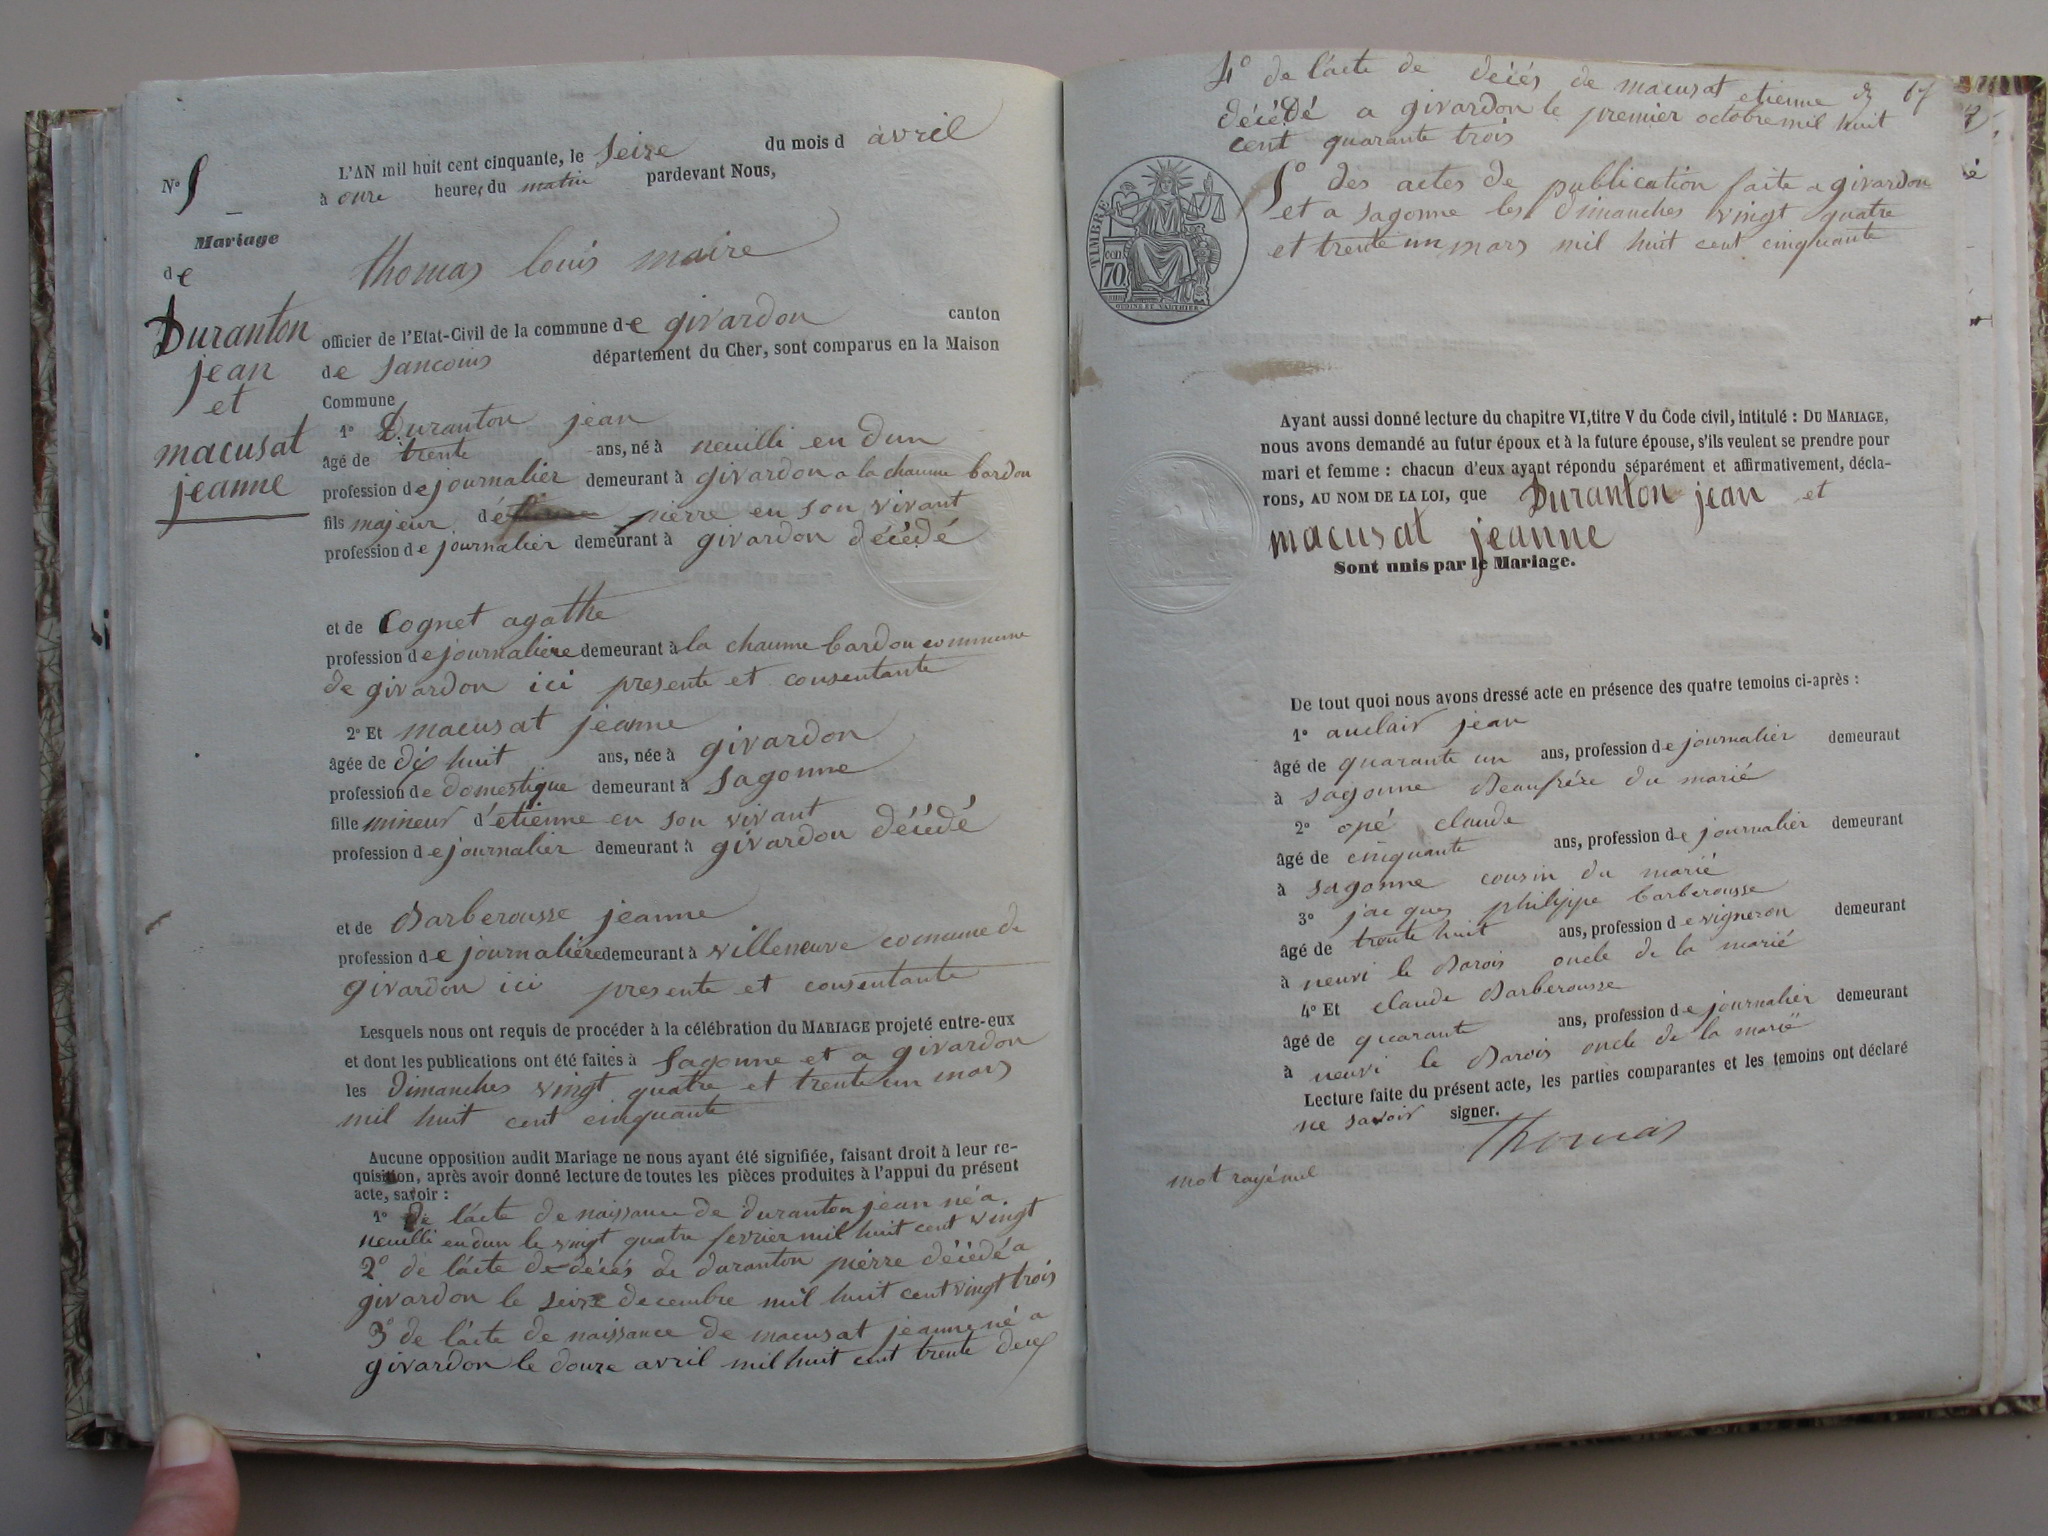 N° 5
Mariage
de
Duranton
jean
et
macusat
jeanne
L'AN mil huit cent cinquante, le seize du mois d avril
à onze heures du matin pardevant Nous,
thomas louis maire
officier de l'Etat-Civil de la commune de givardon canton
de sancouis département du Cher, sont comparus en la Maison
Commune
1° Duranton jean
âgé de trente ans, né à neuilli en dun
profession de journalier demeurant à givardon a la chaume bardon
fils majeur de pierre en son vivant
profession de journalier demeurant à givardon décédé
et de Cognet agathe
profession de journaliere demeurant à la chaume bardon commune
de givardon ici presente et consentante
2° Et macusat jeanne
âgée de dix huit ans, née à givardon
profession de domestique demeurant à sagonne
fille mineur d'étienne en son vivant
profession de journalier demeurant à givardon décédé
et de Barberousse jeanne
profession de journalière demeurant à villeneuve commune de
givardon ici presente et consentante
Lesquels nous ont requis de procéder à la célébration du MARIAGE projeté entre-eux
et dont les publications ont été faites à sagonne et a givardon
les dimanches vingt quatre et trente un mars
mil huit cent cinquante
Aucune opposition audit Mariage ne nous ayant été signifiée, faisant droit à leur re-
quisition, après avoir donné lecture de toutes les pièces produites à l'appui du présent
acte, savoir :
1° de lácte de naissance de duranton jean né a
neuilli en dun le vingt quatre fevrier mil huit cent vingt
2° de lácte de décés de duranton pierre décédé a
givardon le seize decembre mil huit cent vingt trois
3° de lácte de naissance de macusat jeanne né a
givardon le douze avril mil huit cent trente deux
4° de lácte de décés de macusat etienne 67
décédé a givardon le premier octobre mil huit
cent quarante trois
5° des actes de publication faite a givardon
et a sagonne les dimanches vingt quatre
et trente un mars mil huit cent cinquante
TIMBRE
con
70
OUDINE ET VAUTHIER
Ayant aussi donné lecture du chapitre VI, titre V du Code civil, intitulé : DU MARIAGE,
nous avons demandé au futur époux et à la future épouse, s'ils veulent se prendre pour
mari et femme : chacun d'eux ayant répondu séparément et affirmativement, décla-
rons, AU NOM DE LA LOI, que Duranton jean et
macusat jeanne
Sont unis par le Mariage.
De tout quoi nous avons dressé acte en présence des quatre temoins ci-après :
1° auclair jean
âgé de quarante un ans, profession de journalier demeurant
à sagonne Beaufrére du marié
2° opé claude
âgé de cinquante ans, profession de journalier demeurant
à sagonne cousin du marié
3° jacques philippe barberousse
âgé de trente huit ans, profession de vigneron demeurant
à neuvi le Barois oncle de la marié
4° Et claude Barberousse
âgé de quarante ans, profession de journalier demeurant
à neuvi le Barois oncle de la marié
Lecture faite du présent acte, les parties comparantes et les temoins ont déclaré
ne savoir signer.
Thomas
mot rayé nul